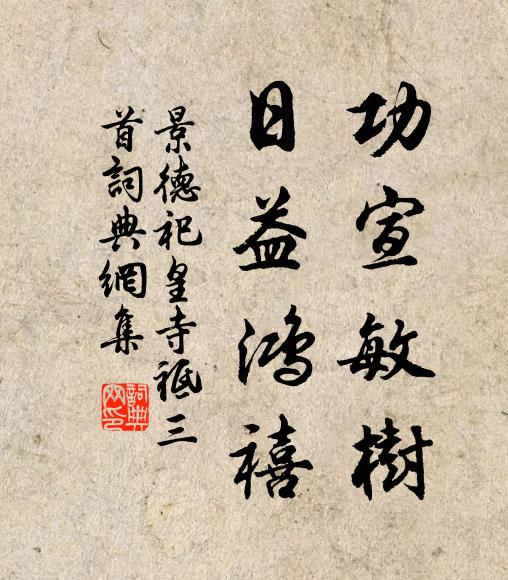 功宣敏樹
日益鴻禧
景德祀皇寺祗三
首詞典網集
詞典網印